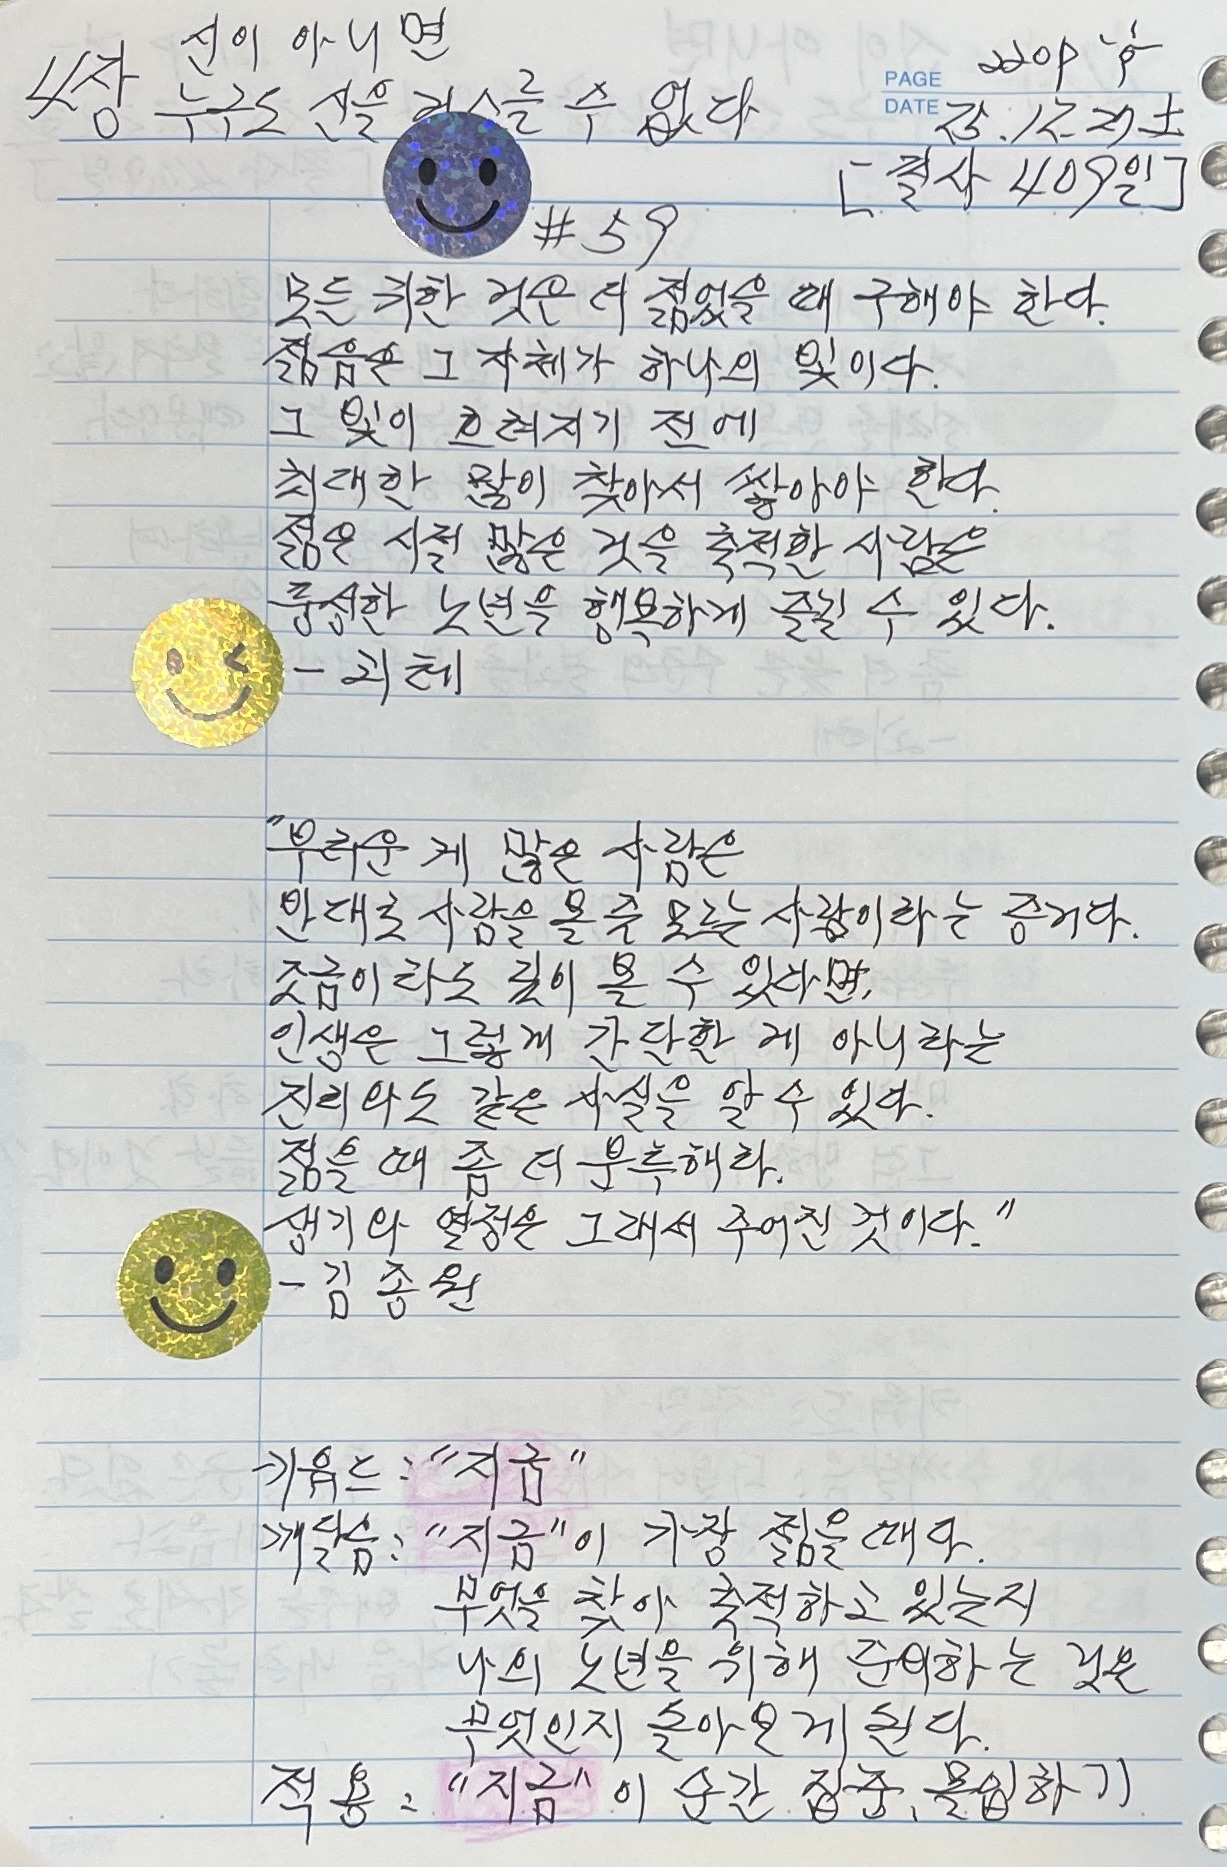 4장 신이 아니면
누구도 신을 거스를 수 없다
PAGE 220P
DATE 25.12.27.土
[필사 409일]
#59
모든 귀한 것은 더 젊었을 때 구해야 한다.
젊음은 그 자체가 하나의 빛이다.
그 빛이 흐려지기 전에
최대한 많이 찾아서 쌓아야 한다.
젊은 시절 많은 것을 축적한 사람은
풍성한 노년을 행복하게 즐길 수 있다.
- 괴테
"부러운 게 많은 사람은
반대로 사람을 볼 줄 모르는 사람이라는 증거다.
조금이라도 깊이 볼 수 있다면,
인생은 그렇게 간단한 게 아니라는
진리와도 같은 사실을 알 수 있다.
젊을 때 좀 더 분투해라.
생기와 열정은 그래서 주어진 것이다."
- 김종원
키워드 : "지금"
깨달음 : "지금"이 가장 젊을 때다.
무엇을 찾아 축적하고 있는지
나의 노년을 위해 준비하는 것은
무엇인지 돌아보게 된다.
적용 : "지금" 이 순간 집중, 몰입하기